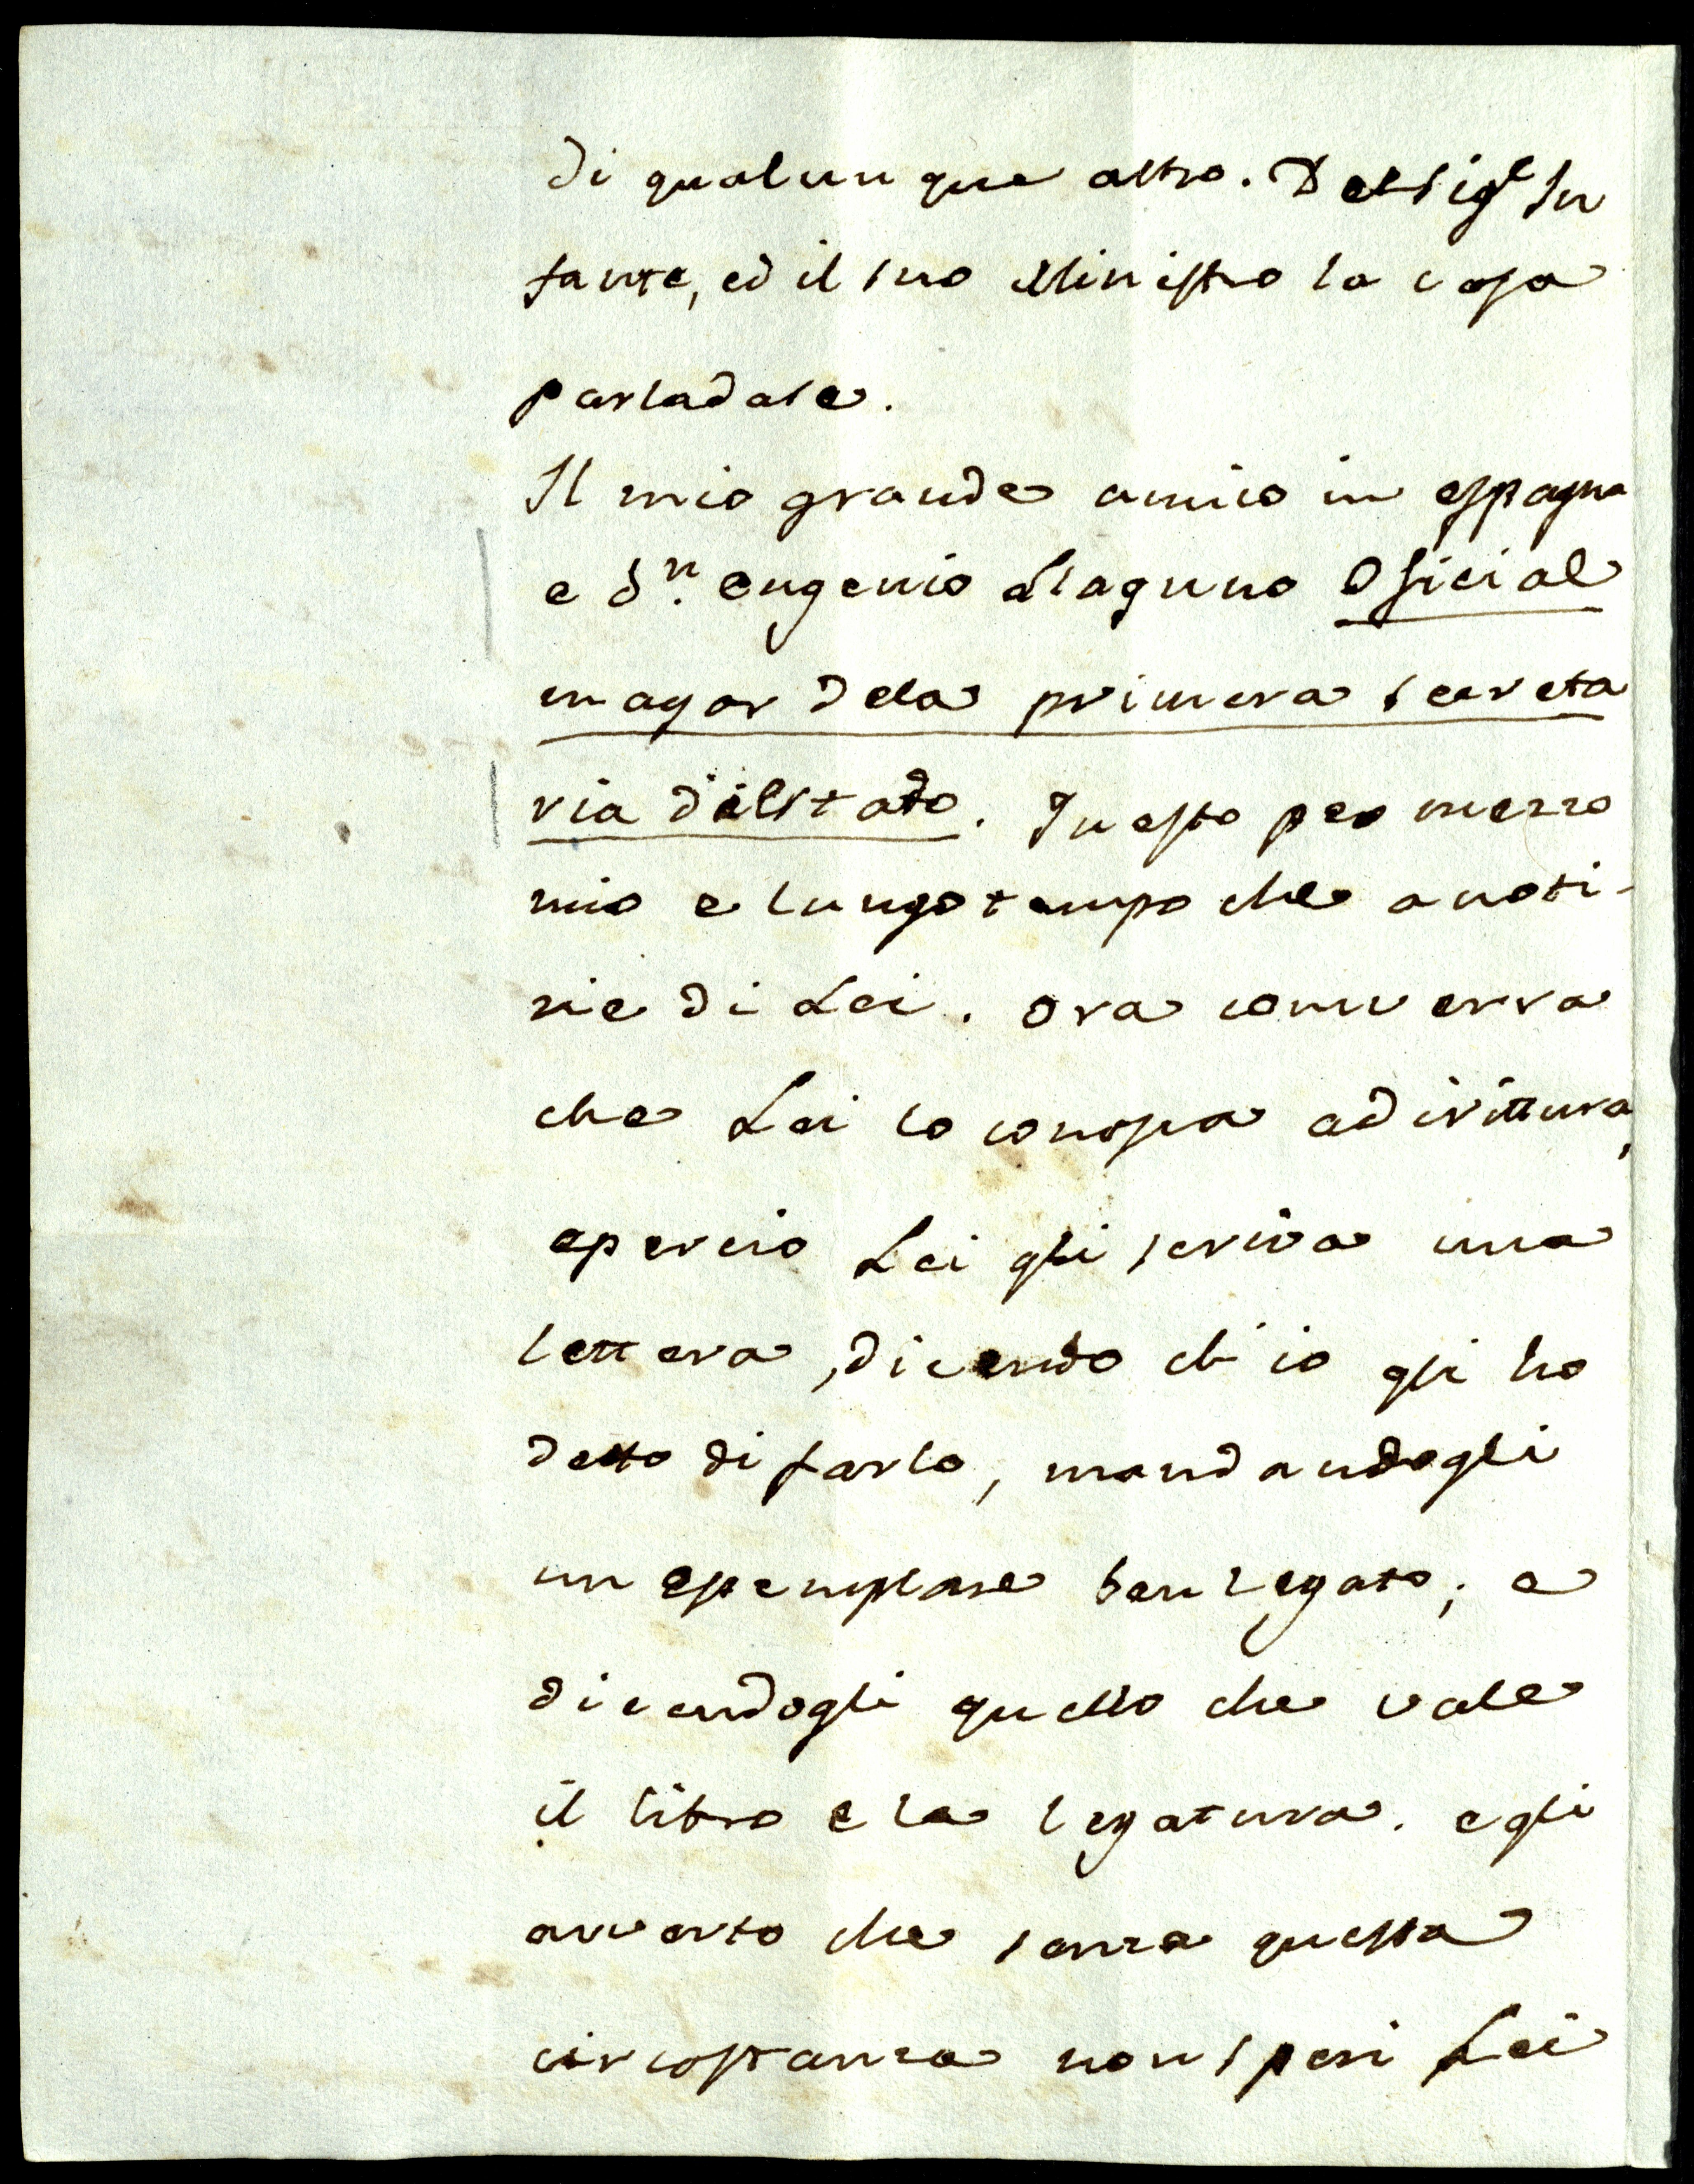 di qualunque altro. Del Sig.r In
fante, ed il suo Ministro la cosa
parladase.
Il mio grande amico in espagna
e Dn. eugenio Llaguno Oficial
mayor dela primera secreta
ria d'elstado. Questo per mezzo
mio e lungo tempo che a noti-
zie di Lei. Ora converra
che Lei lo conosca adirittura,
epercio Lei gli scriva una
lettera, dicendo ch'io gli ho
detto di farlo, mandandogli
un esemplare ben legato; e
dicendogli quello che vale
il libro e la legatura. e gli
averto che senza questa
circostanza non speri Lei